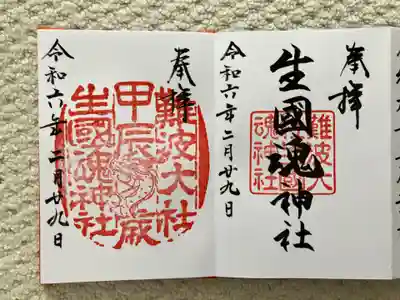 奉拝
生國魂神社
難波大
社生國
魂神社
令和六年二月廿九日
奉拝
難波大社
甲辰歳
生國魂神社
令和六年二月廿九日